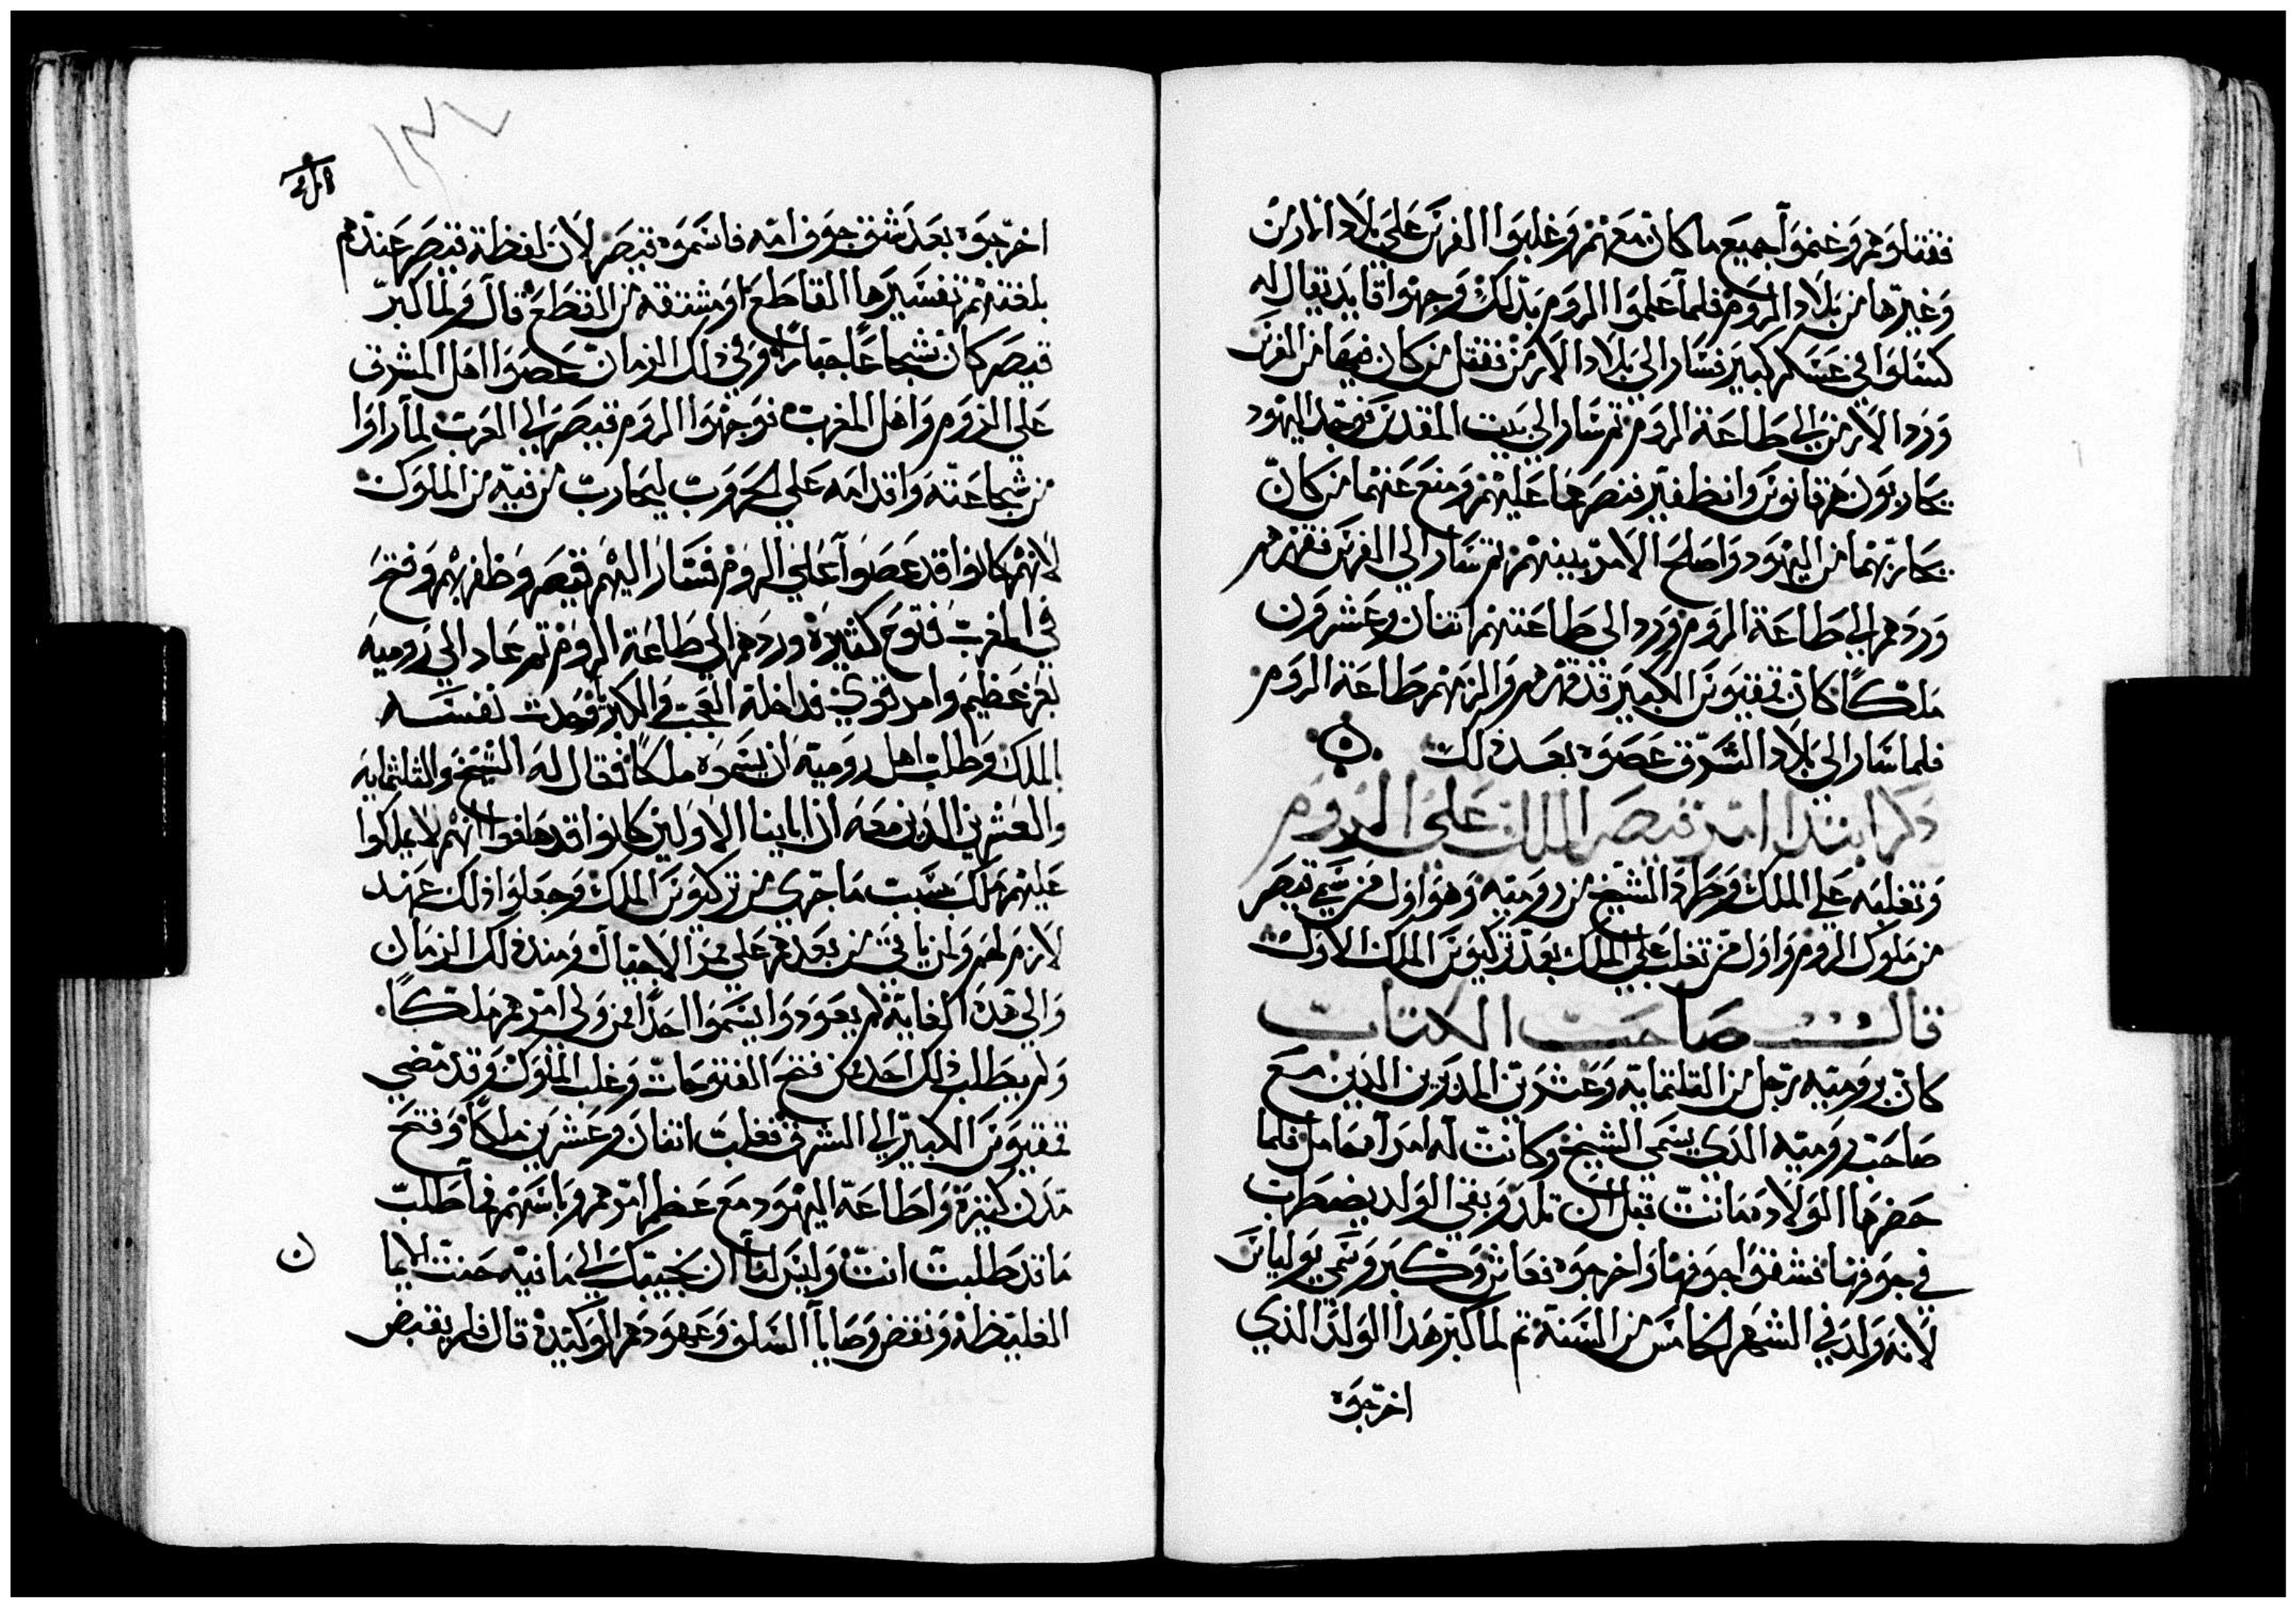 فقتلوهم وغنموا جميع ما كان معهم وغلبوا الفرس على بلاد الارمن
وغيرها من بلاد الروم فلما علموا الروم بذلك وجهوا قايد يقال له
كسنلوا في عسكر كبير فسار الى بلاد الارمن فقتل من كان فيها من الفرس
وردا الارمن الى طاعة الروم ثم سار الى بيت المقدس فوجد اليهود
يحاربون هرقانوس وانطفير فنصرهما عليهم ومنع عنهما من كان
يحاربهما من اليهود واصلح الامر بينهم ثم سار الى الفرس فقهرهم
وردهم الى طاعة الروم وردا الى طاعتهم اثنان وعشرون
ملكًا كان تمفيوس الكبير قد قهرهم والزمهم طاعة الروم
فلما سار الى بلاد الشرق عصوه بعد ذلك
ذكر ابتدا امر قيصر الملك على الروم
وتغلبه على الملك وطرد الشيخ من رومية وهو اول من سمي قيصر
من ملوك الروم واول من تغلب على الملك بعد تركيوس الملك الاول
قال صاحب الكتاب
كان برومية رجل من الثلثماية وعشرين المدبرين الذين مع
صاحب رومية الذي يسمى الشيخ وكانت له امرأة حامل فلما
حضرها الولاد ماتت قبل ان تلد وبقي الولد يضطرب
في جوفها فشقوا جوفها واخرجوه فعاش وكبر وسمي يوليانس
لانه ولد في الشهر الخامس من السنة ثم لما كبر هذا الولد الذي
اخرجوه
اخرجوه بعد شق جوف امه فاسموه قيصر لان لفظة قيصر عندهم
بلغتهم تفسيرها القاطع او مشتقه من القطع قال ولما كبر
قيصر كان شجاعًا جبارًا وفي ذلك الزمان عصوا اهل المشرق
على الروم واهل المغرب فوجهوا الروم قيصر الى الغرب لما راوا
من شجاعته واقدامه على الحروب ليحارب من فيه من الملوك
لانهم كانوا قد عصوا على الروم فسار اليهم قيصر وظفر بهم وفتح
في المغرب فتوح كثيرة وردهم الى طاعة الروم ثم عاد الى رومية
بعز عظيم وامر قوي فداخله العجب والكبر وحدث نفسه
بالملك وطلب اهل رومية ان يسموه ملكًا فقال له الشيخ والثلثماية
والعشرين الذين معه ان ابابنا الاولين كانوا قد حلفوا انهم لا يملكوا
عليهم ملك بسبب ما جرى من تركيوس الملك وجعلوا ذلك عهد
لازم لهم ولمن ياتي من بعدهم على ممر الاجيال ومند ذلك الزمان
والى هذه الغاية لم يعودوا يسموا احدًا من ولي امرهم ملكًا
ولم يطلب ذلك احد ممن فتح الفتوحات وغلب الملوك وقد مضى
تمفيوس الكبير الى الشرق فغلب اثنان وعشرين ملكًا وفتح
مدن كثيرة واطاعه اليهود مع عظم امرهم وباسهم فما طلب
ما قد طلبت انت وليس لنا ان نجيبك الى ما فيه حنث الايما
الغليظة ونقض وصايا السلف وعهودهم الوكيدة قال فلم يقبض
ن